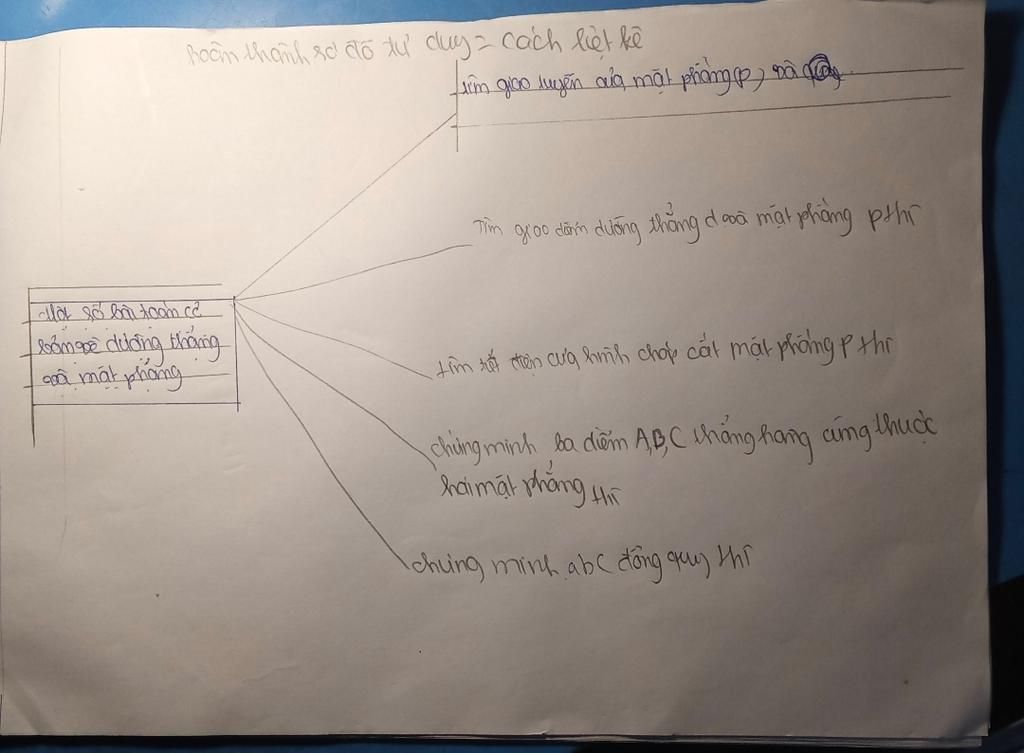 hoàn thành sơ đồ tư duy = cách liệt kê
tìm giao tuyến của mặt phẳng (p) và
Tìm giao điểm đường thẳng d và mặt phẳng p thì
Một số bài toán cơ
bản về đường thẳng
và mặt phẳng
tìm tiết diện của hình chóp cắt mặt phẳng p thì
chúng minh ba điểm A,B,C thẳng hàng cùng thuộc
hai mặt phẳng thì
chúng minh abc đồng quy thì